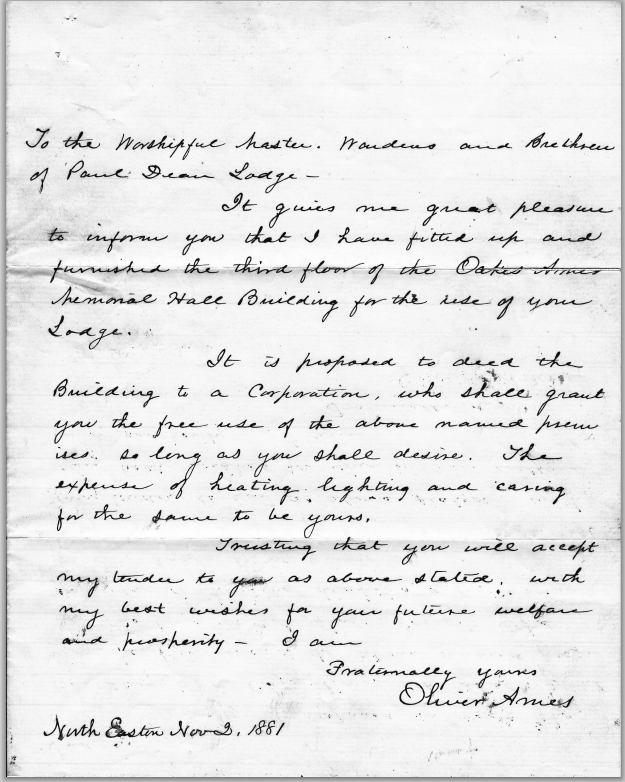 To the Worshipful Master. Wardens and Brethren
of Paul Dean Lodge -
It gives me great pleasure
to inform you that I have fitted up and
furnished the third floor of the Oakes Ames
Memorial Hall Building for the use of your
Lodge.
It is proposed to deed the
Building to a Corporation, who shall grant
you the free use of the above named prem
ises. so long as you shall desire. The
expense of heating lighting and caring
for the same to be yours.
Trusting that you will accept
my tender to you as above stated, with
my best wishes for your future welfare
and prosperity - I am
Fraternally yours
Oliver Ames
North Easton Nov 2, 1881